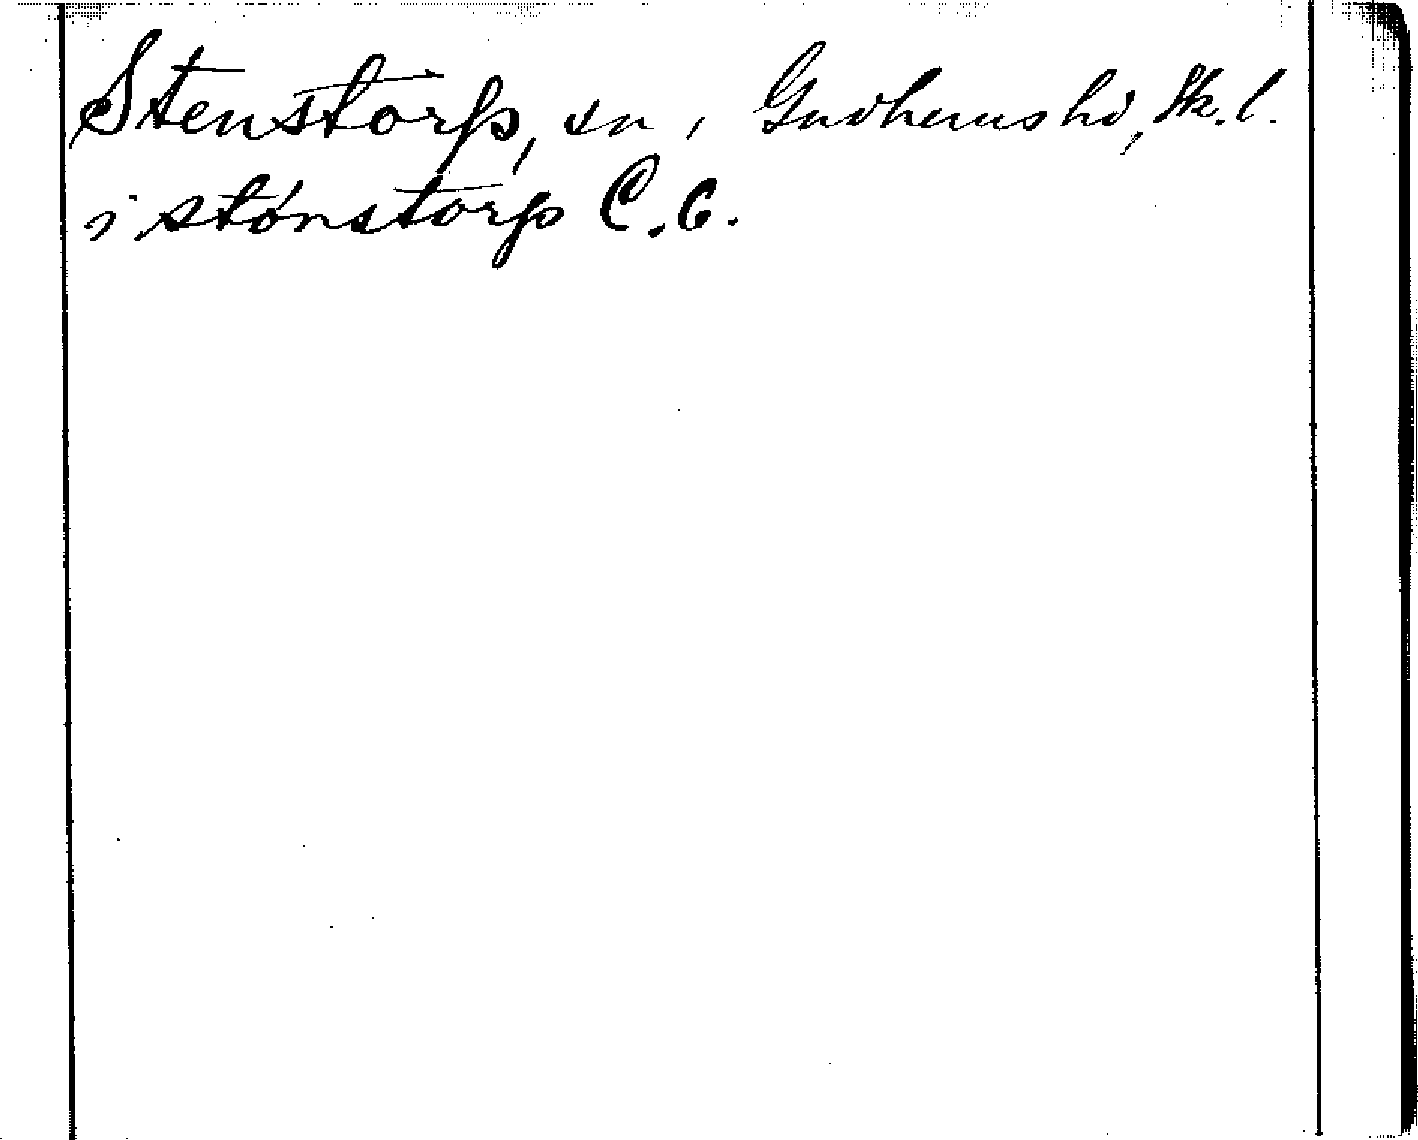 Stenstorp, sn, Gudhems hd, Sk. l.
i stónstorp C. 6.